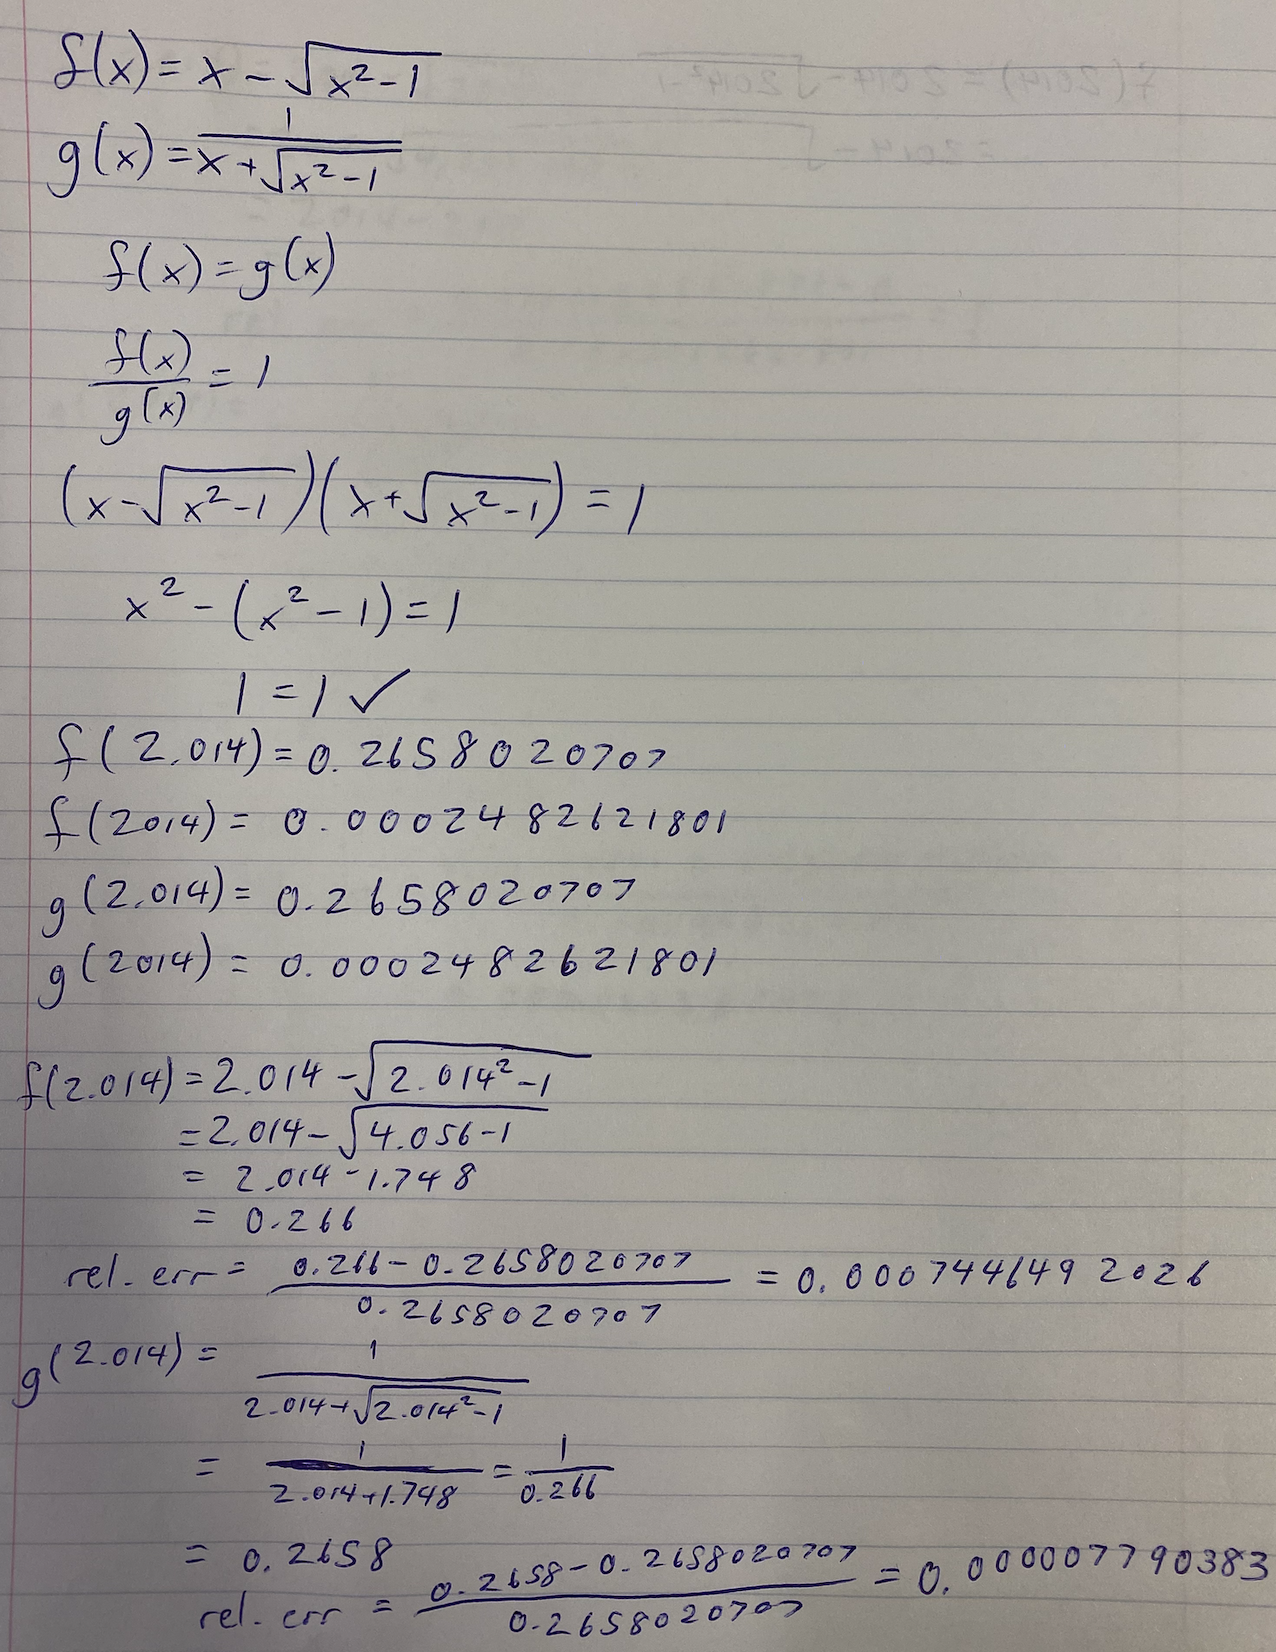 f(x) = x - √(x² - 1)
g(x) = 1/(x + √(x² - 1))
f(x) = g(x)
f(x)/g(x) = 1
(x - √(x² - 1))(x + √(x² - 1)) = 1
x² - (x² - 1) = 1
1 = 1 ✓
f(2.014) = 0.2658020707
f(2014) = 0.0002482621801
g(2.014) = 0.2658020707
g(2014) = 0.0002482621801
f(2.014) = 2.014 - √(2.014² - 1)
= 2.014 - √(4.056 - 1)
= 2.014 - 1.748
= 0.266
rel. err = (0.266 - 0.2658020707)/0.2658020707 = 0.0007446492026
g(2.014) = 1/(2.014 + √(2.014² - 1))
= 1/(2.014 + 1.748) = 1/0.266
= 0.2658
rel. err = (0.2658 - 0.2658020707)/0.2658020707 = 0.000007790383